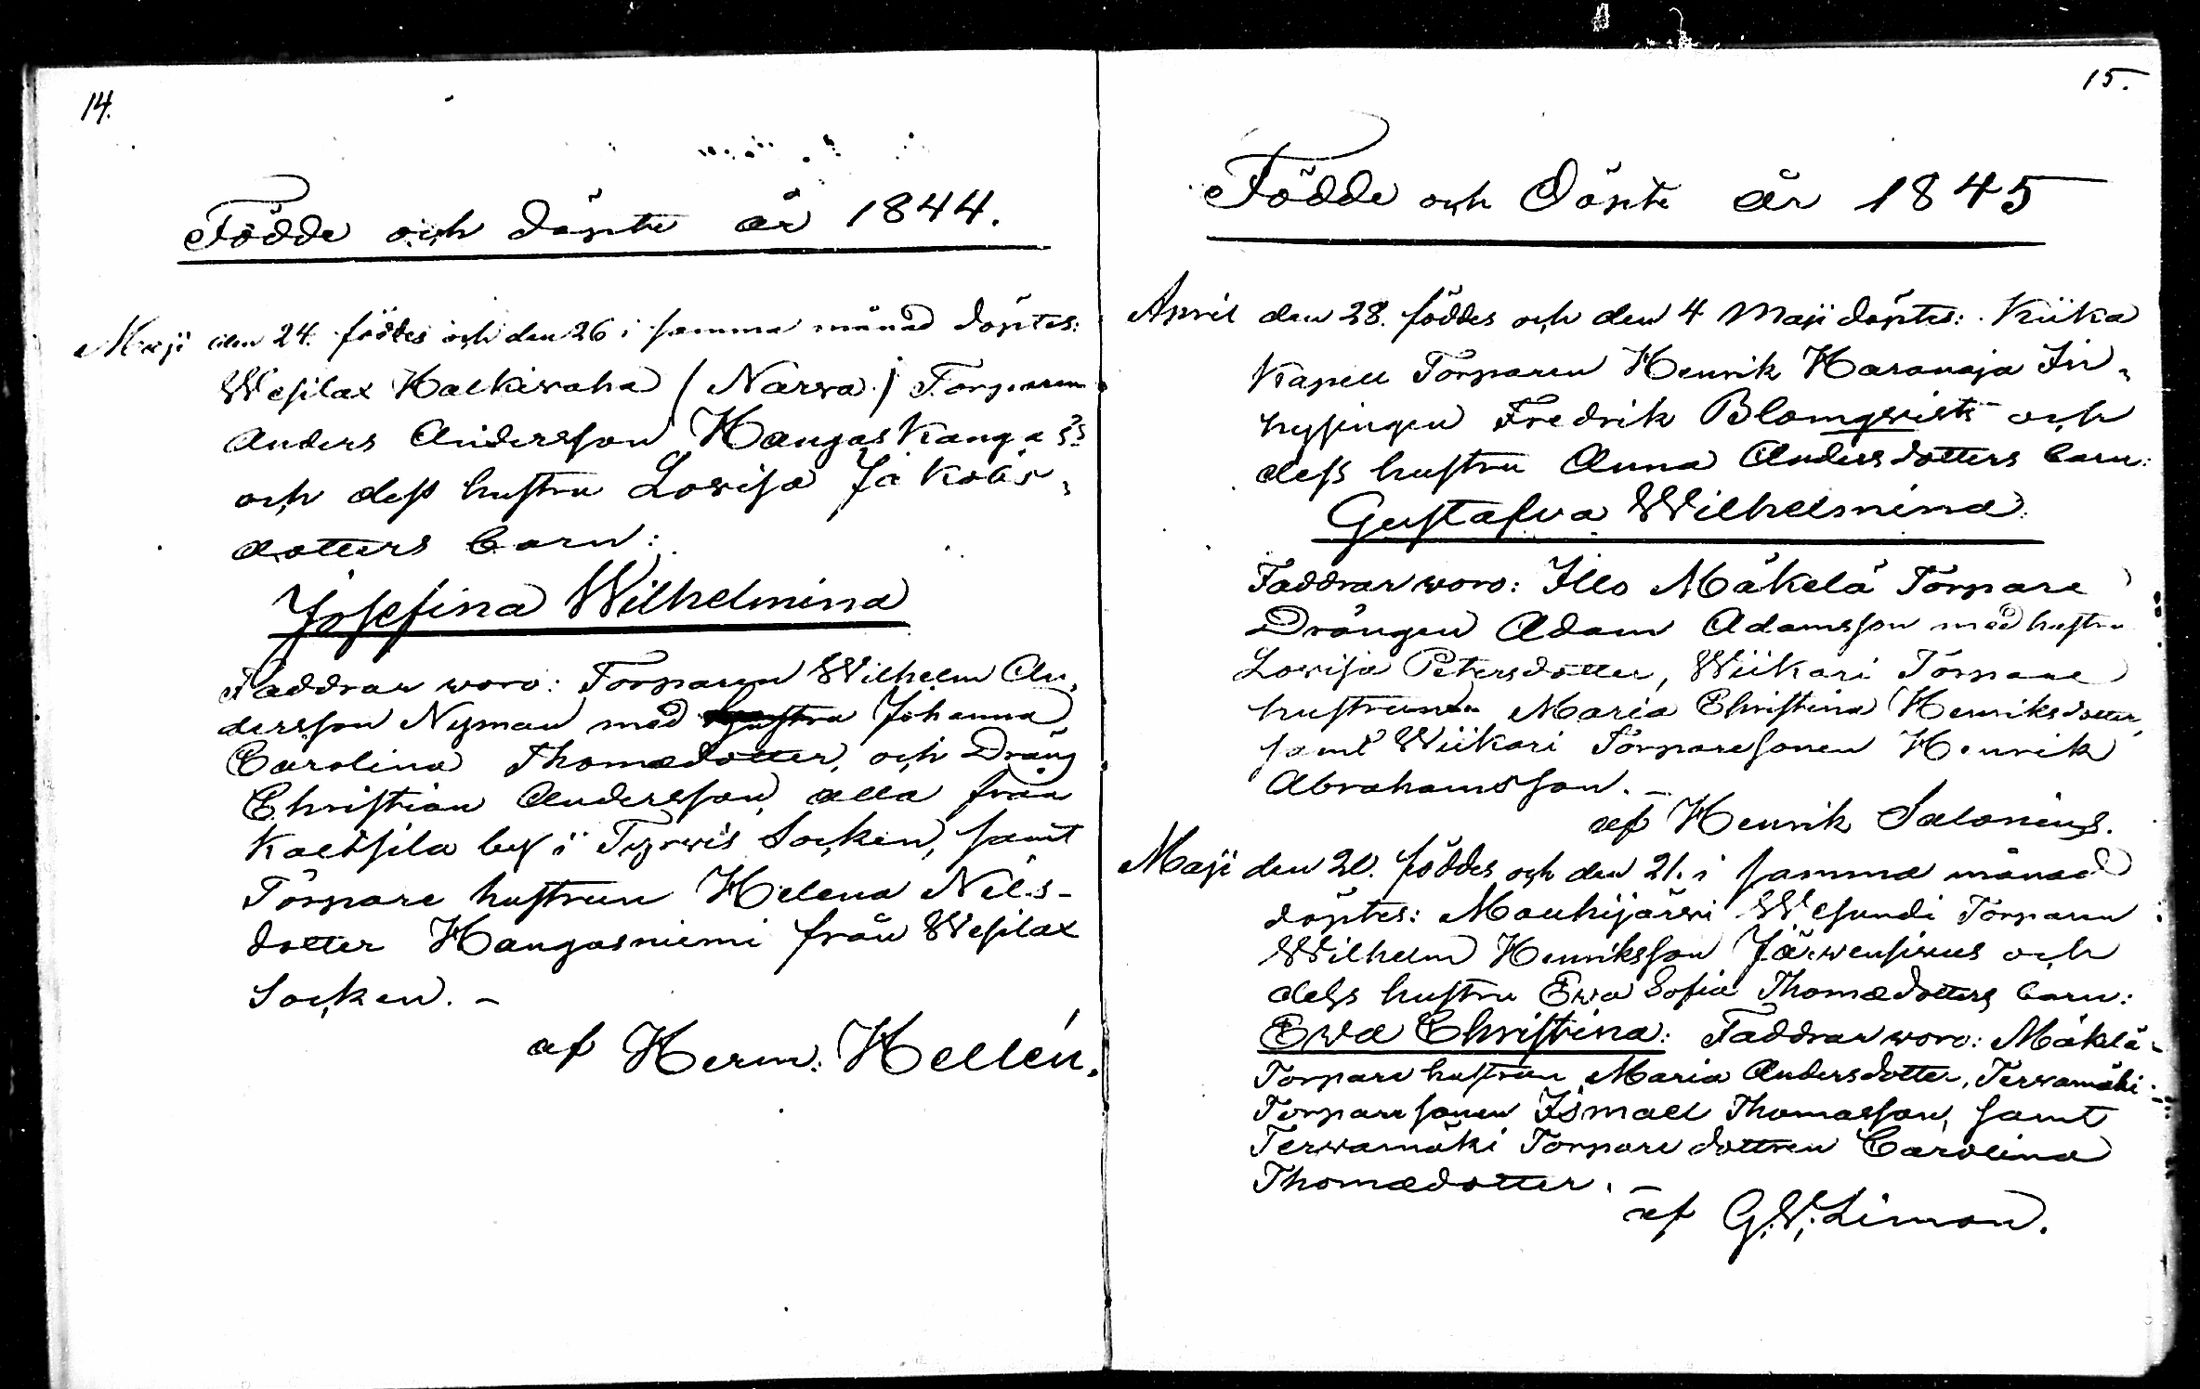 14.
Födde och döpte år 1844.
Maji den 24. föddes och den 26 i samma månad döptes:
Wesilax Halkiwaha (Narwa) Torparen
Anders Andersson Hangaskangas??
och dess hustru Lovisa Jakobs-
dotters barn:
Josefina Wilhelmina
Faddrar woro: Torparen Wilhelm An-
dersson Nyman med hustru Johanna
Carolina Thomædotter, och Dräng
Christian Andersson alla från
Kaltsila by i Tyrwis Socken, samt
Torpare hustrun Helena Nils-
dotter Hangasniemi från Wesilax
Socken. -
af Herm: Hellén.
15.
Födde och Döpte år 1845
April den 28. föddes och den 4 Maji döptes: Kiika
Kapell Torparen Henrik Haranoja In-
hysingen Fredrik Blomqvists och
dess hustru Anna Andersdotters barn:
Gustafva Wilhelmina.
Faddrar woro: Illo Mäkelä Torpare
Drängen Adam Adamsson med hustru
Lovisa Petersdotter, Wiikari Torpare
hustrun Maria Christina Henriksdotter
samt Wiikari Torparesonen Henrik
Abrahamsson. -
af Henrik Salonius.
Maji den 20. föddes och den 21. i samma månad
döptes: Mouhijärwi Wesundi Torparen
Wilhelm Henriksson Järwensiwus och
dess hustru Ewa Sofia Thomædotters barn:
Ewa Christina: Faddrar woro: Mäkelä-
Torpare hustrun Maria Andersdotter, Terwamäki-
Torparesonen Ismael Thomasson, samt
Terwamäki Torpare dottren Carolina
Thomædotter. -
af G.V. Limon.